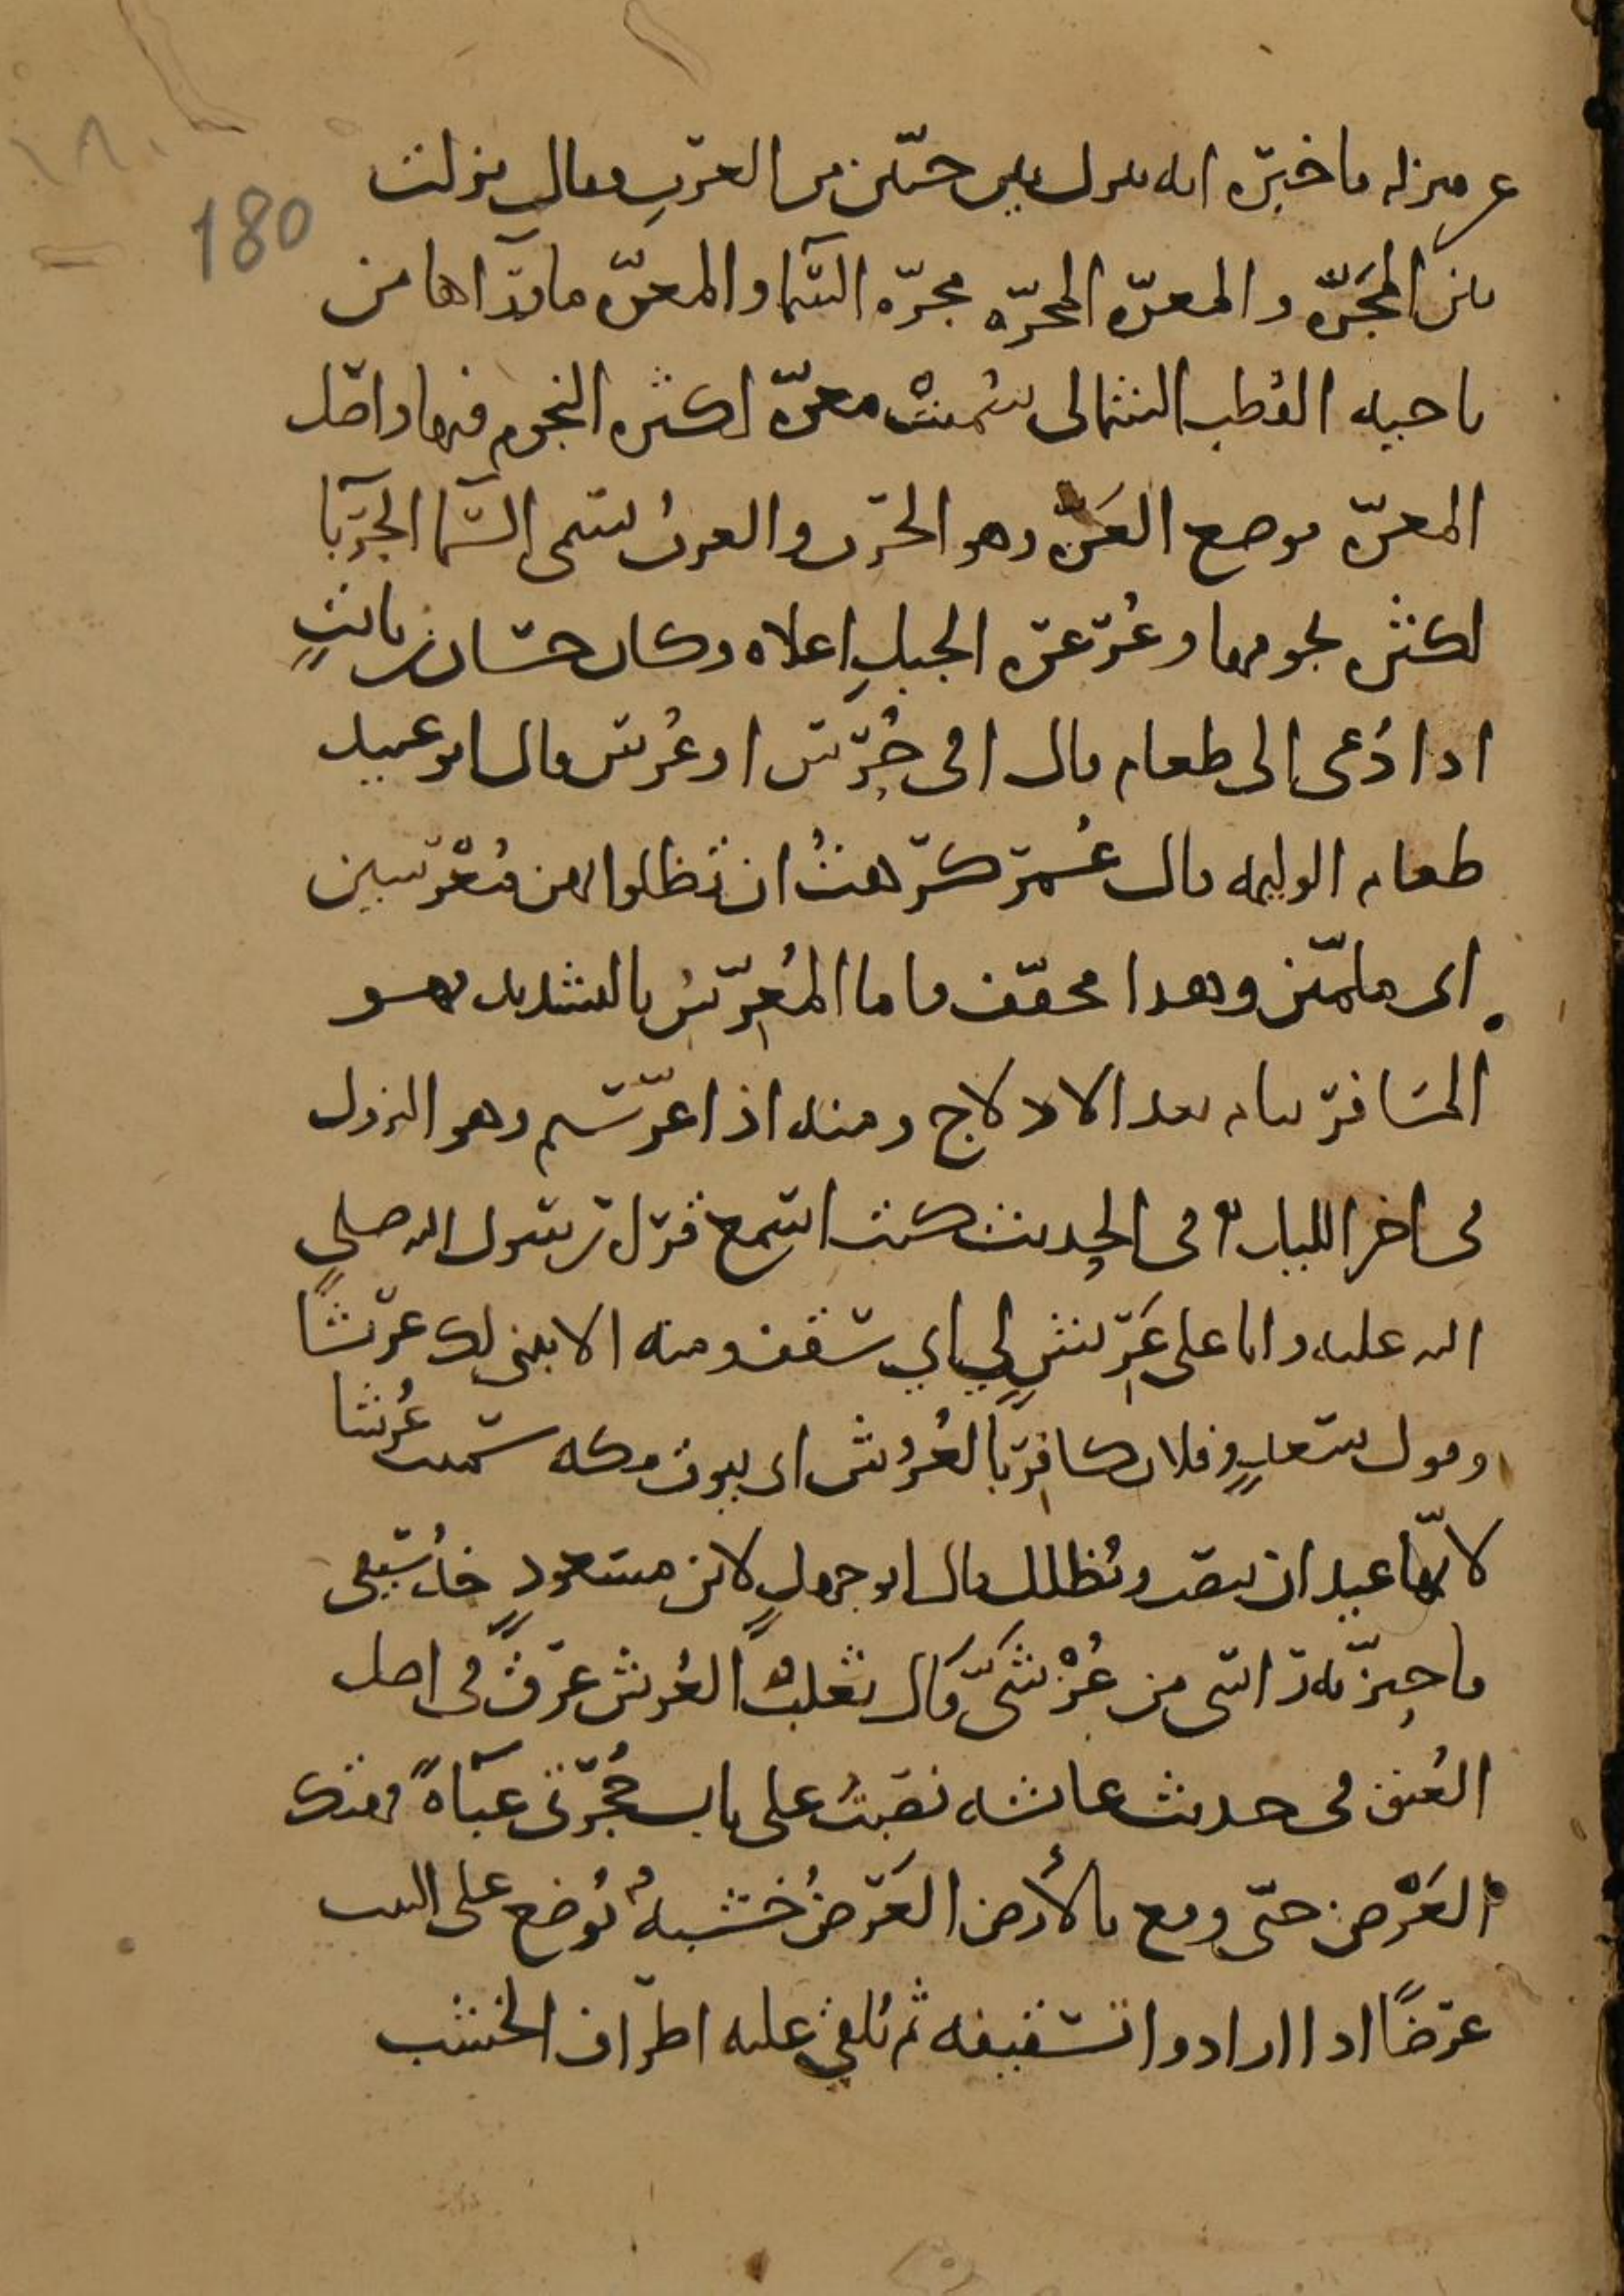 ١٨٠
180
عن منزله فاخبره انه نزل بين حيين من العرب فقال نزلت
بين المجَرّه والمعرّه المجرّه مجرّه السما والمعرّه ماورآها من
ناحيه القُطب الشمالى سُميتْ معرّه لكثره النجوم فيها واصل
المعرّه موضع العَرّه وهو الجرب والعربُ تسمى السّما الجربا
لكثره نجومها وعُرعره الجبلِ اعلاه وكان حسان بن ثابتٍ
اذا دُعى الى طعام قال افى خُرس او عُرس قال ابو عبيد
طعام الوليمه قال عُمر كرهتُ ان تظلوا بهن مُعْرسين
اى ملمّين وهذا مخفّف فاما المُعرّسُ بالتشديد فهو
المسَافر نام بعد الادلاج ومنه اذا عرّستم وهو النزول
فى اخر الليل فى الحديث كنت اسمع قراة رسول الله صلى
الله عليه وانا على عَريش لي اي سقف ومنه الا نبنى لك عريشًا
وقول سعدٍ وفلان كافر بالعُرُش اى بيوت مكه سميت عُرشا
لانّها عيدان تنصب وتُظلل قال ابو جهلٍ لابن مسعودٍ خُذ سيفى
فاحتزّ به راسى من عُرْشىّ قال ثعلبٌ العُرش عرقٌ فى اصل
العُنق فى حديث عائشه نصبتُ على باب حُجرتى عبآةً فهتك
العَرْص حتّى وقع بالأرض العَرصُ خشبهٌ تُوضع على البيت
عرضًا اذا ارادوا تسقيفه ثم تُلقى عليه اطراف الخشب